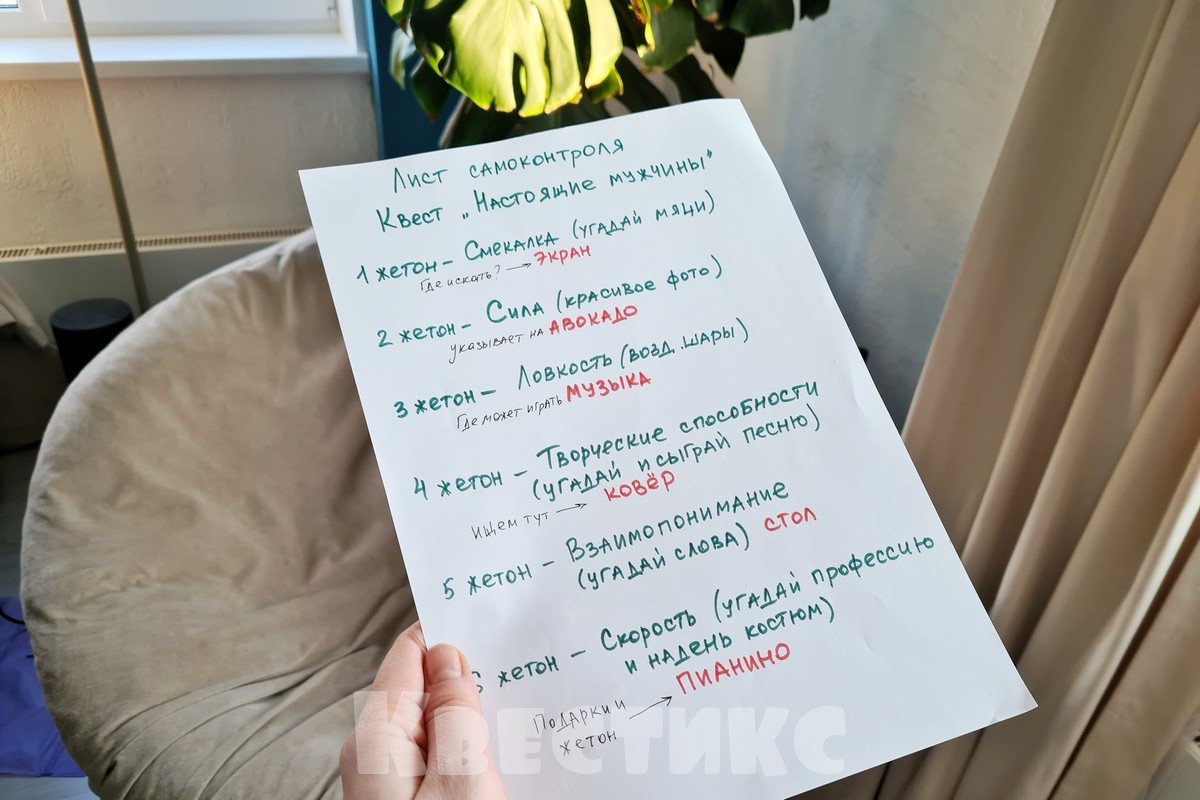 Лист самоконтроля
Квест „Настоящие мужчины"
1 жетон – Смекалка (угадай мячи)
Где искать? → ЭКРАН
2 жетон – Сила (красивое фото)
указывает на АВОКАДО
3 жетон – Ловкость (возд. шары)
Где может играть МУЗЫКА
4 жетон – Творческие способности
(угадай и сыграй песню)
ищем тут → КОВЁР
5 жетон – Взаимопонимание
(угадай слова) СТОЛ
6 жетон – Скорость (угадай профессию
и надень костюм)
Подарки и → ПИАНИНО
жетон
Квестикс